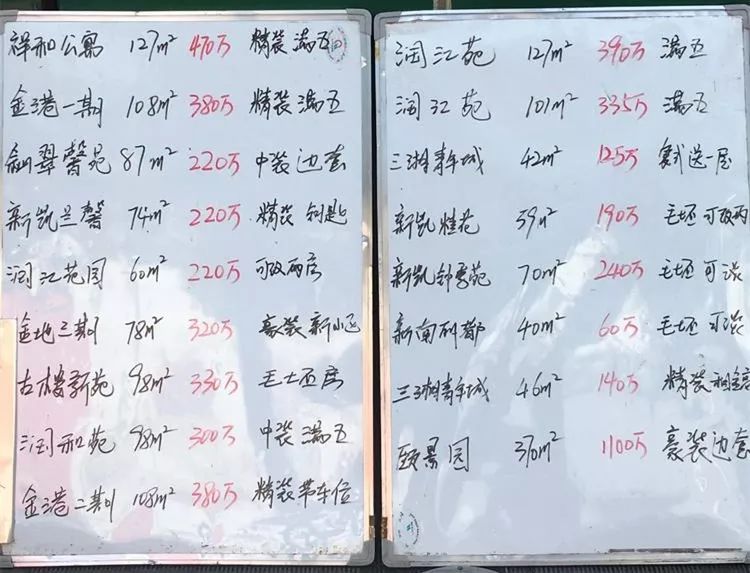 祥和公寓 127m² 470万 精装 满五
金港一期 108m² 380万 精装 满五
翠馨苑 87m² 220万 中装 边套
新凯兰馨 74m² 220万 精装 钥匙
润江花园 60m² 220万 可改两房
金地三期 78m² 320万 豪装 新小区
古楼新苑 98m² 330万 毛坯房
润和苑 98m² 300万 中装 满五
金港二期 108m² 380万 精装 带车位
润江苑 127m² 390万 满五
润江苑 101m² 335万 满五
三湘青年城 42m² 125万 复式送一层
新凯桂花 59m² 190万 毛坯 可改两
新凯钟馨苑 70m² 240万 毛坯 可谈
新南科都 40m² 60万 毛坯 可谈
三湘青年城 46m² 140万 精装 租金高
颐景园 370m² 1100万 豪装 边套